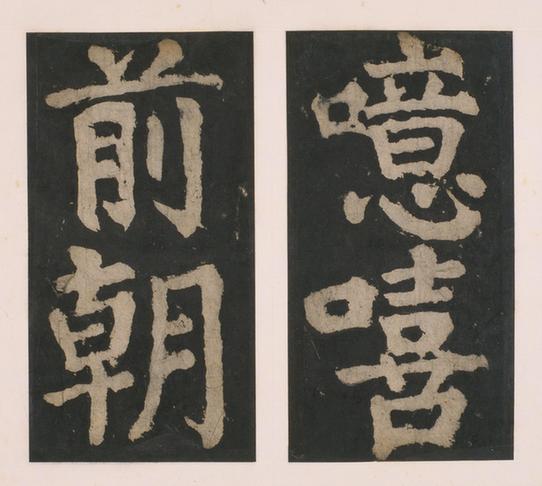 噫嘻
前朝